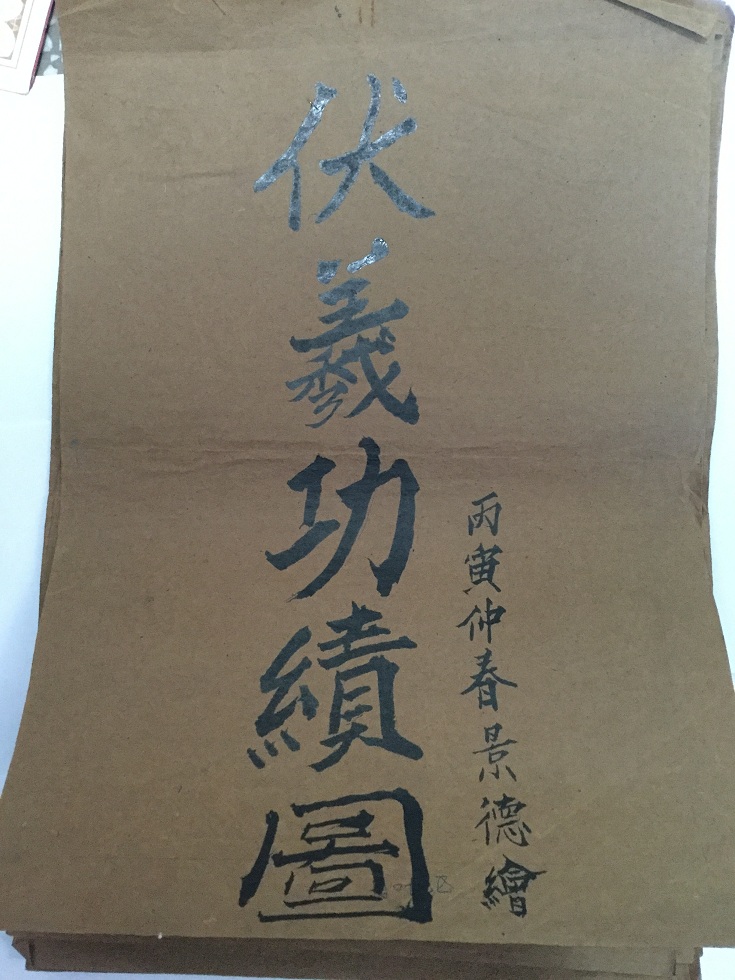 伏羲功績圖
丙寅仲春景德繪